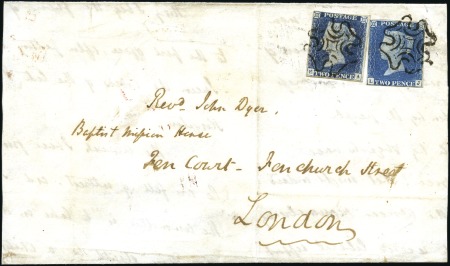 POSTAGE POSTAGE
TWO PENCE TWO PENCE
Revd. John Dyer.
Baptist Mission House
Fen Court - Fenchurch Street
London